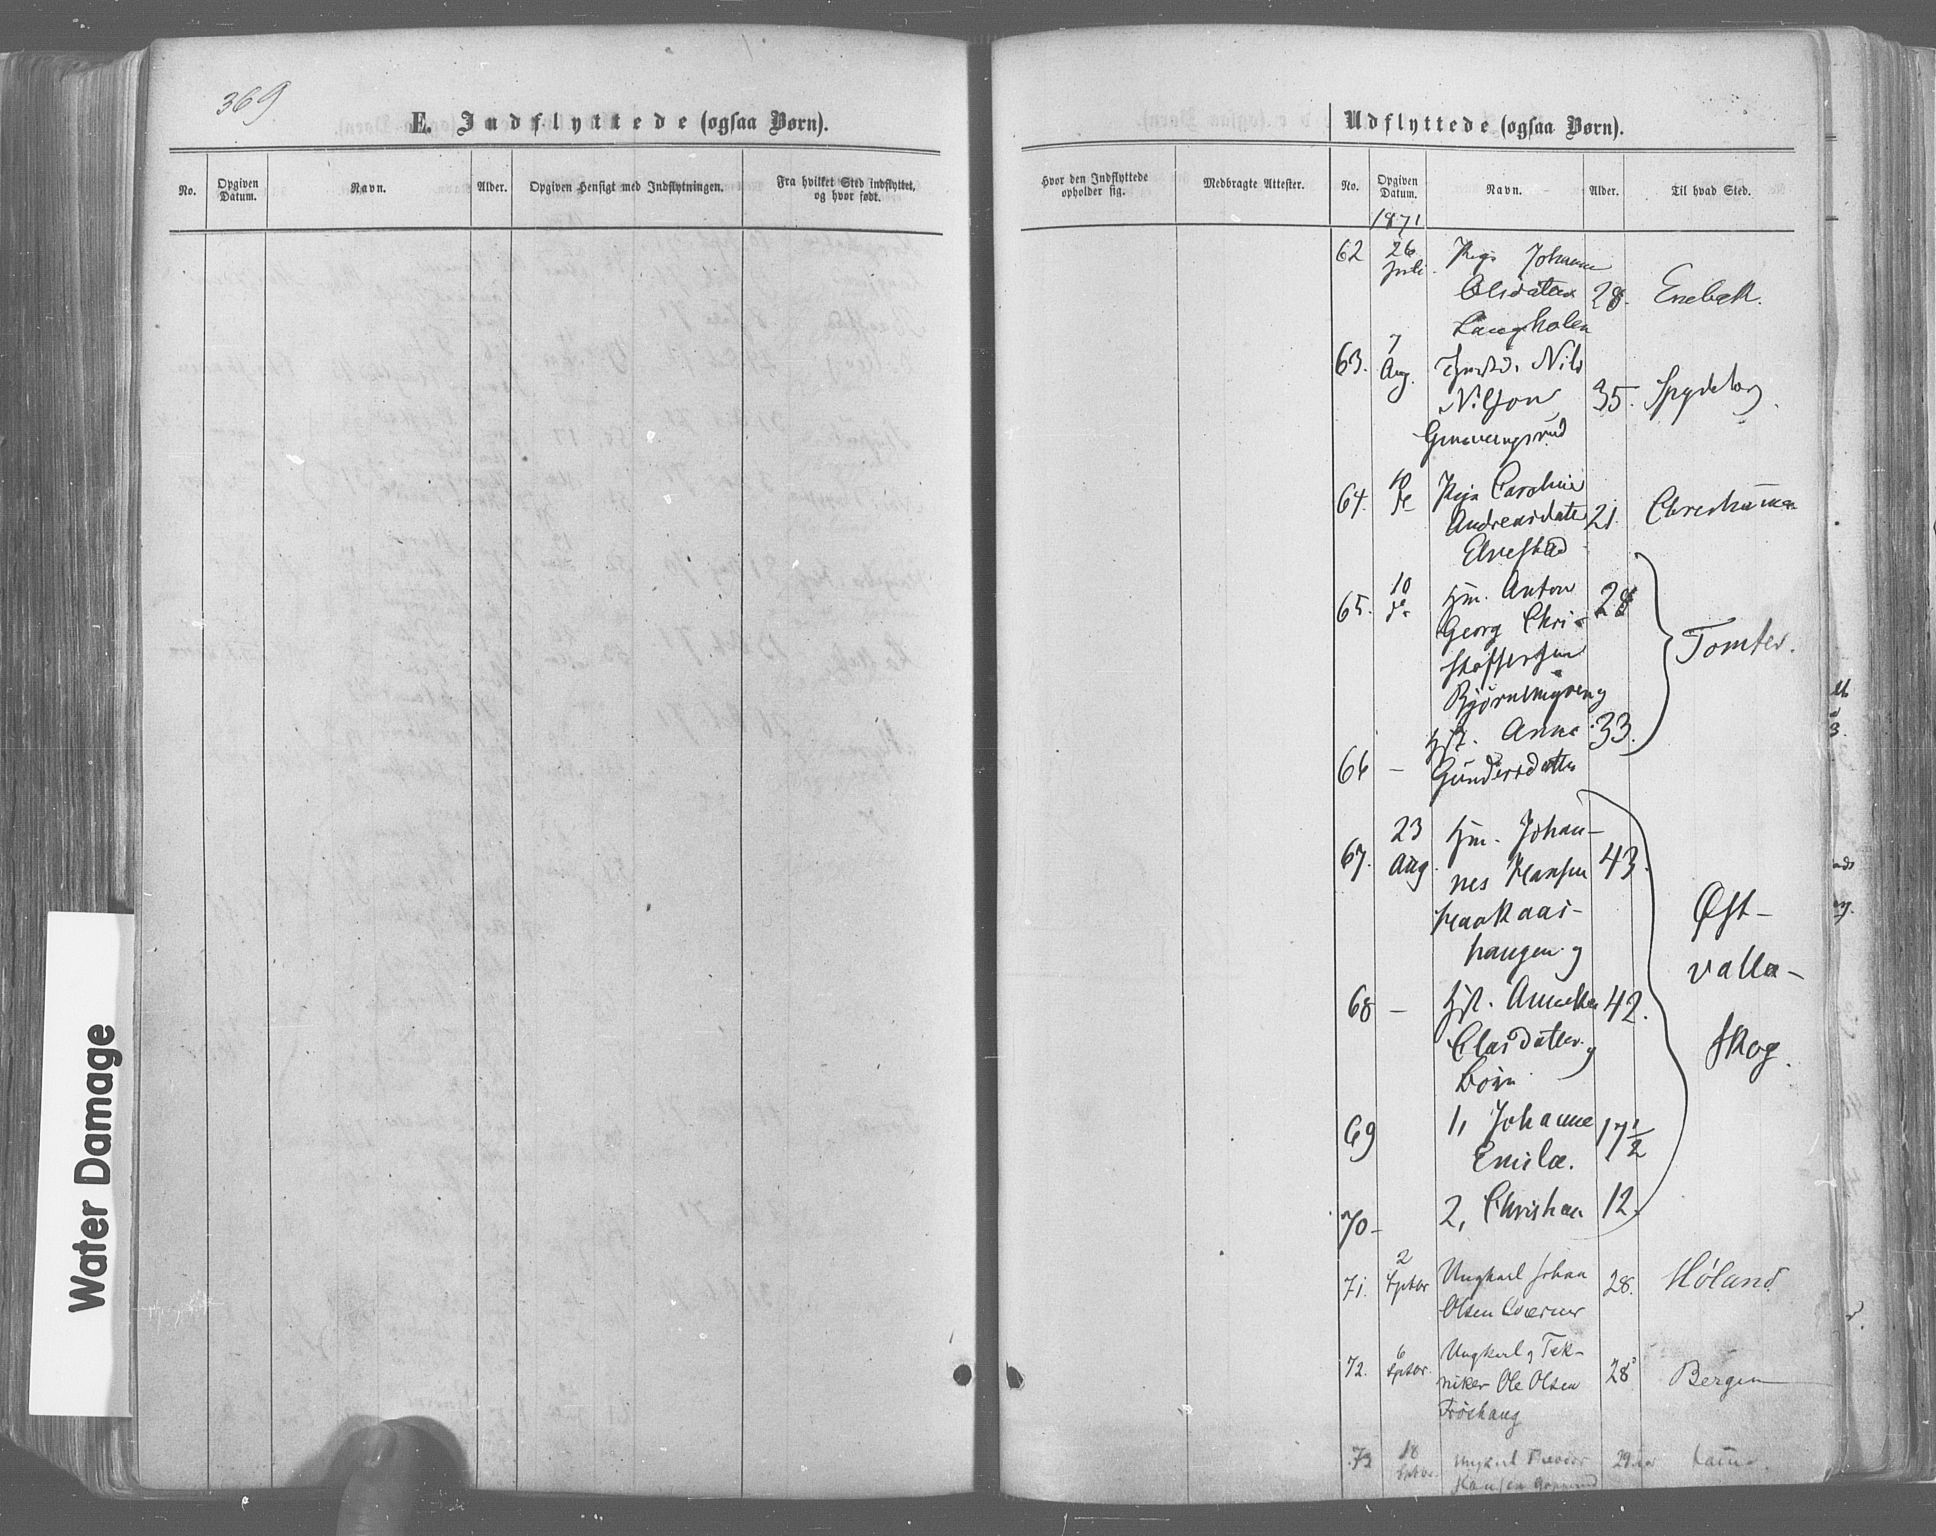 369
E. Indflyttede (ogsaa Børn).
No.
Opgiven Datum.
Navn.
Alder.
Opgiven Hensigt med Indflytningen.
Fra hvilket Sted indflyttet, og hvor født.
Udflyttede (ogsaa Børn).
Hvor den Indflyttede opholder sig.
Medbragte Attester.
No.
Opgiven Datum.
Navn.
Alder.
Til hvad Sted.
1871
62 26 Juli Pige Johanne
Olsdatter 28. Enebak.
Langholen
63. 7 Aug. Nils
Nilson 35. Spydeberg
64. 10 de Pige Caroline
Andreasdatter 21. Christiania
Elvestad
65. 10 de Hm. Anton 28
Georg Chri-
stoffersen Tomter.
og
Hst. Anne 33.
66 – Gundersdatter
67. 23 Aug. Hm. Johan- 43.
nes Hansen
Haakaas- Øst-
haugen og valla-
68 – Hst. Anneken 42. skog.
Olasdatter og
Børn
69 1, Johanne 17 1/2
Emilie.
70– 2, Christian 12.
71. 2 Sptbr Ungkarl Johan 28. Høland
Olsen Qværner
72. 6 Sptbr. Ungkarl og Tek- 28 Bergen
niker Ole Olsen
Frøshaug
73 18 Sptbr. Ungkarl 29
Hansen
Water Damage